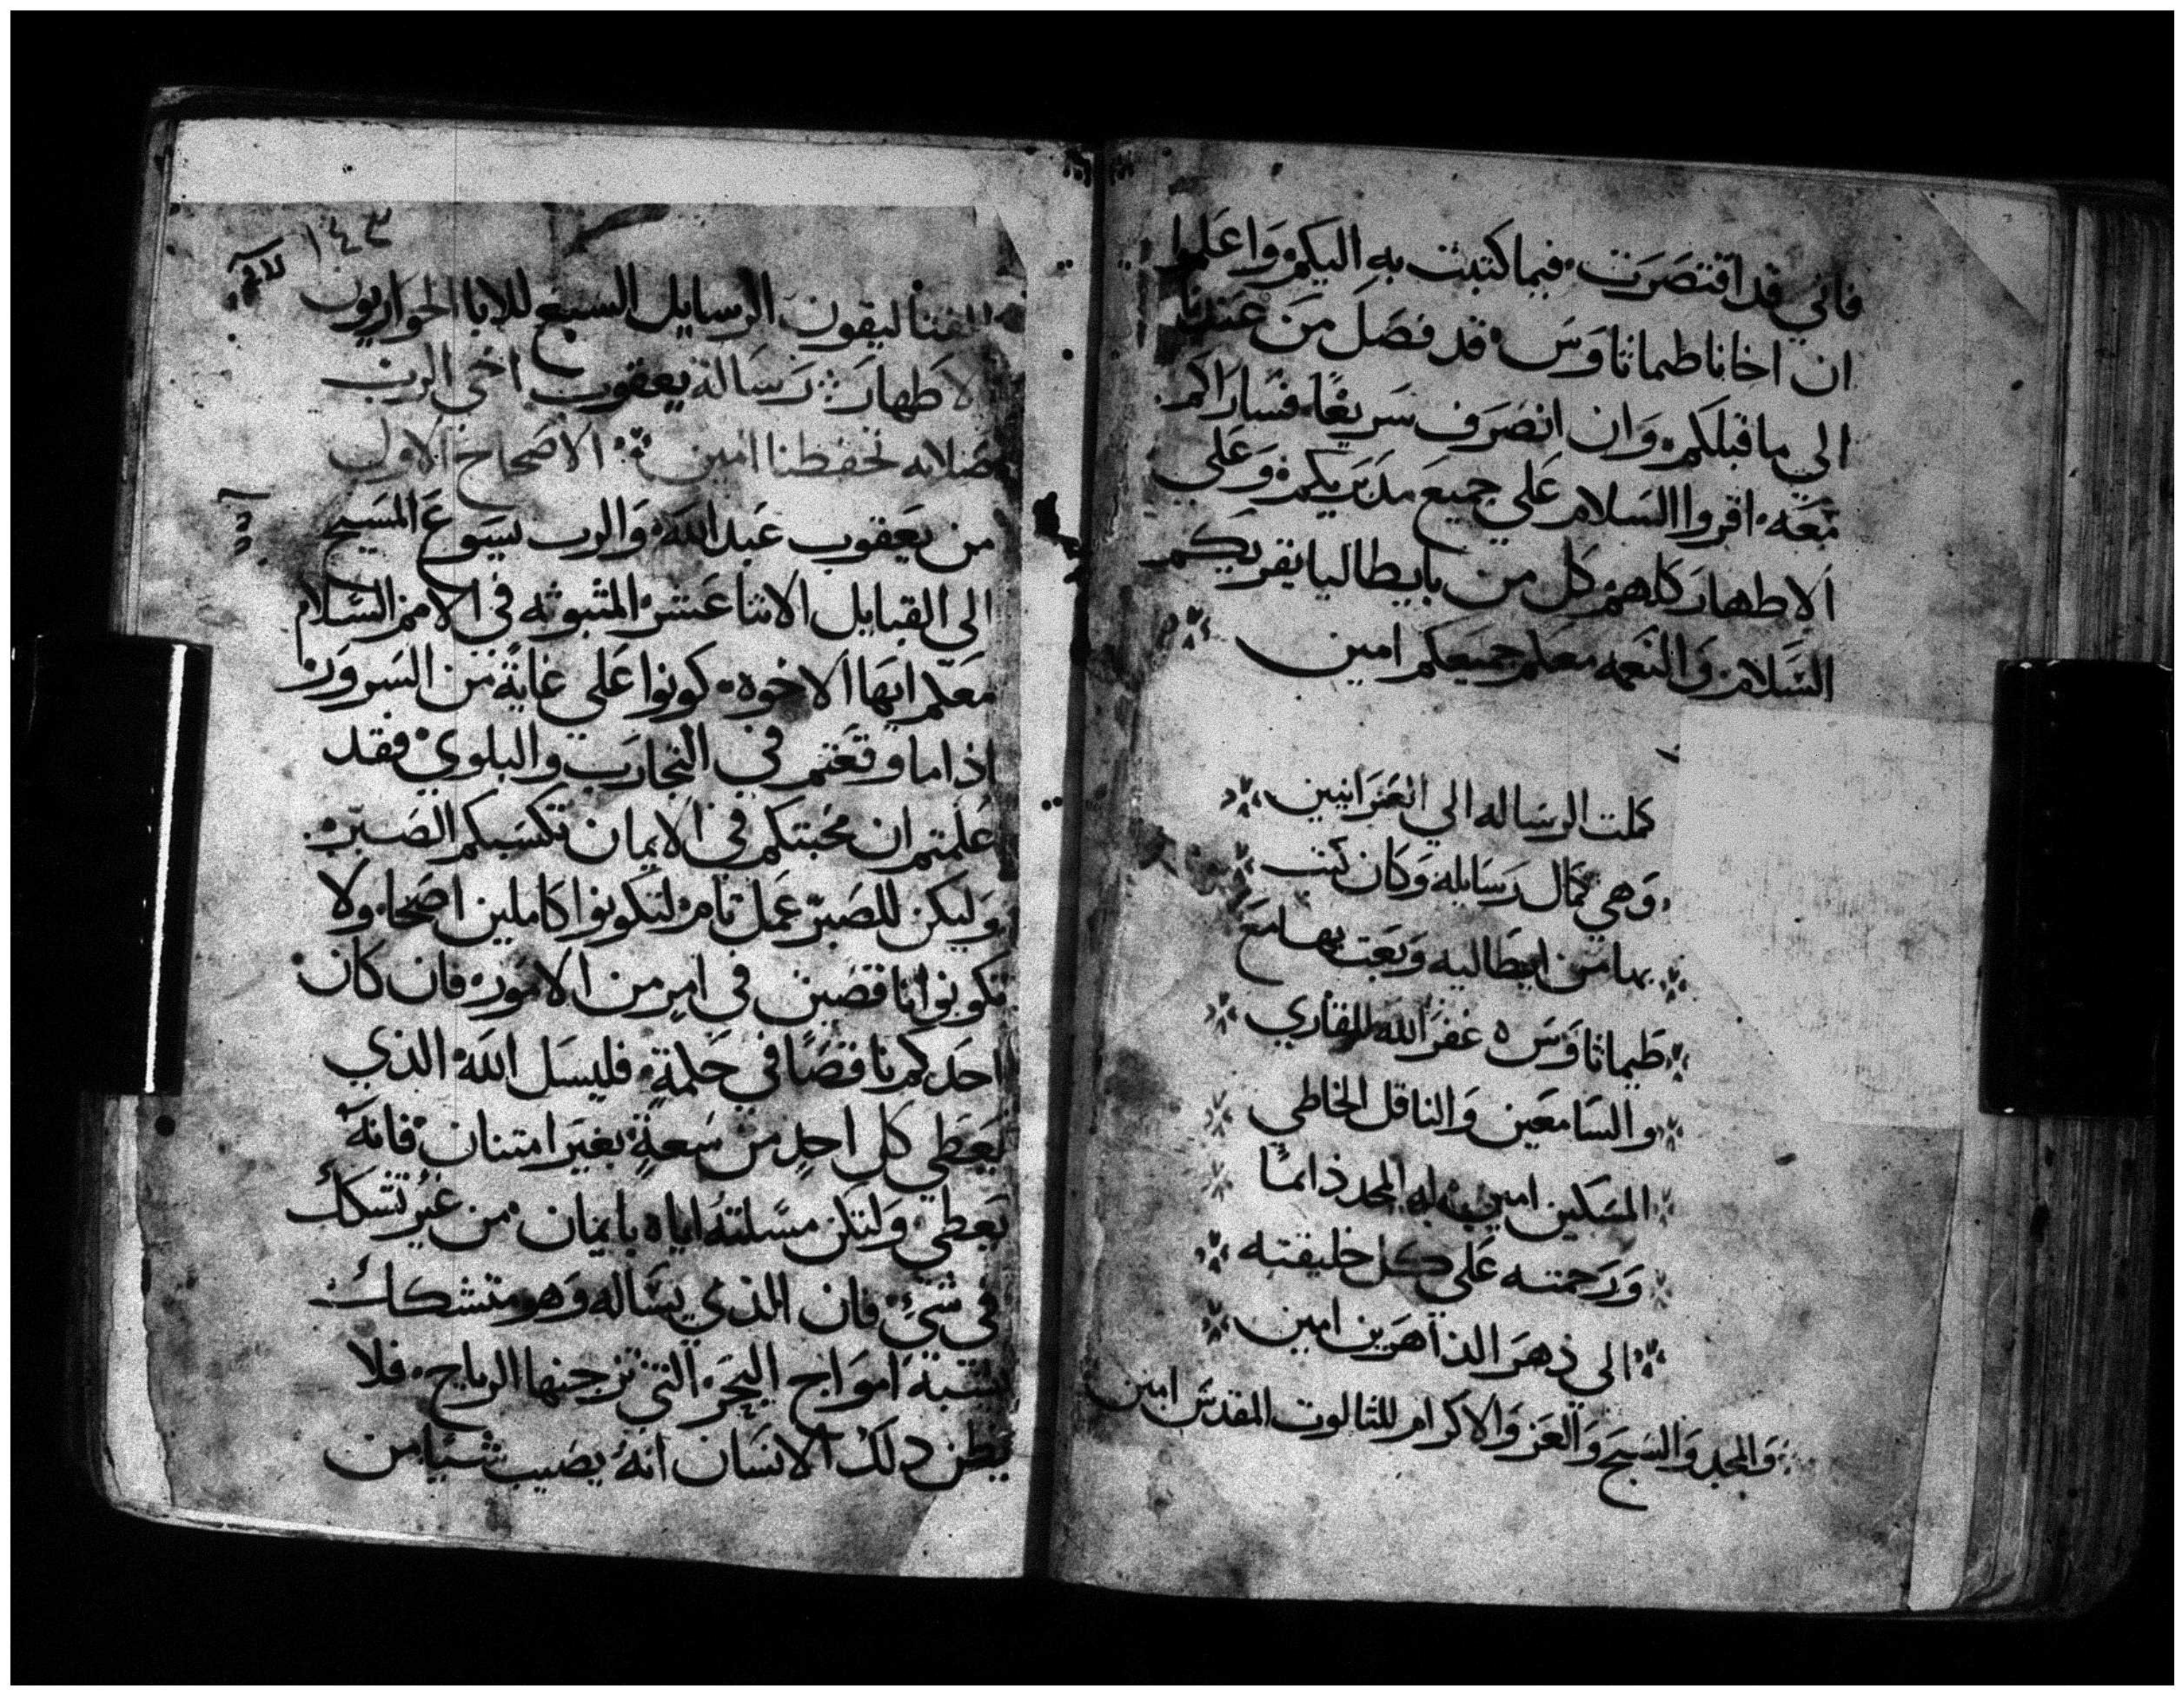 فاني قد اقتصرت فيما كتبت به اليكم واعلموا
ان اخانا طماثاوس قد فصل من عندنا
الي ما قبلكم وان انصرف سريعا فساراكم
معه اقروا السلام علي جميع مدبريكم وعلي
الاطهار كلهم كل من بايطاليا يقريكم
السلام والنعمه معكم جميعكم امين
كملت الرساله الي العبرانيين
وهي كمال رسايله وكان كتب
بها من ايطاليه وبعت بها مع
طيماثاوس غفر الله للقاري
والسامعين والناقل الخاطي
المسكين امين له المجد دايما
ورحمته علي كل خليقته
الي دهر الداهرين امين
والمجد والسبح والعز والاكرام للثالوت المقدس امين
١٤٣
القتاليقون الرسايل السبع للابا الحواريون
لاطهار رسالة يعقوب اخي الرب
صلاته تحفظنا امين الاصحاح الاول
من يعقوب عبد الله والرب يسوع المسيح
الى القبايل الاثنا عشر المثبوثه في الامم السلام
معكم ايها الاخوه كونوا علي غاية من السرور
اذا ما وقعتم في التجارب والبلوي فقد
علمتم ان محبتكم في الايمان تكسبكم الصبر
وليكن للصبر عمل تام لتكونوا كاملين اصحا ولا
تكونوا ناقصين في امر من الامور فان كان
احدكم ناقصا في حكمة فليسل الله الذي
يعطي كل احد من سعة بغير امتنان فانه
يعطي ولتكن مسلته اياه بايمان من غير تشكك
في شي فان الذي يساله وهو متشكك
يشبه امواج البحر التي تزجيها الرياح فلا
يظن دلك الانسان انه يصيب شيا من